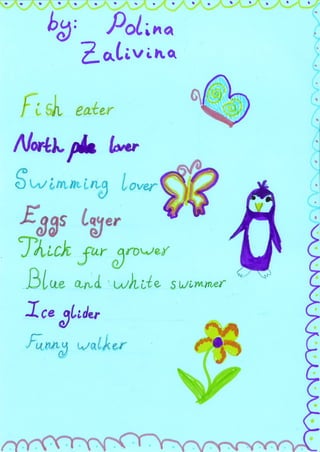 by: Polina
Zalivina
Fish eater
North pole lover
Swimming lover
Eggs layer
Thick fur grower
Blue and white swimmer
Ice glider
Funny walker